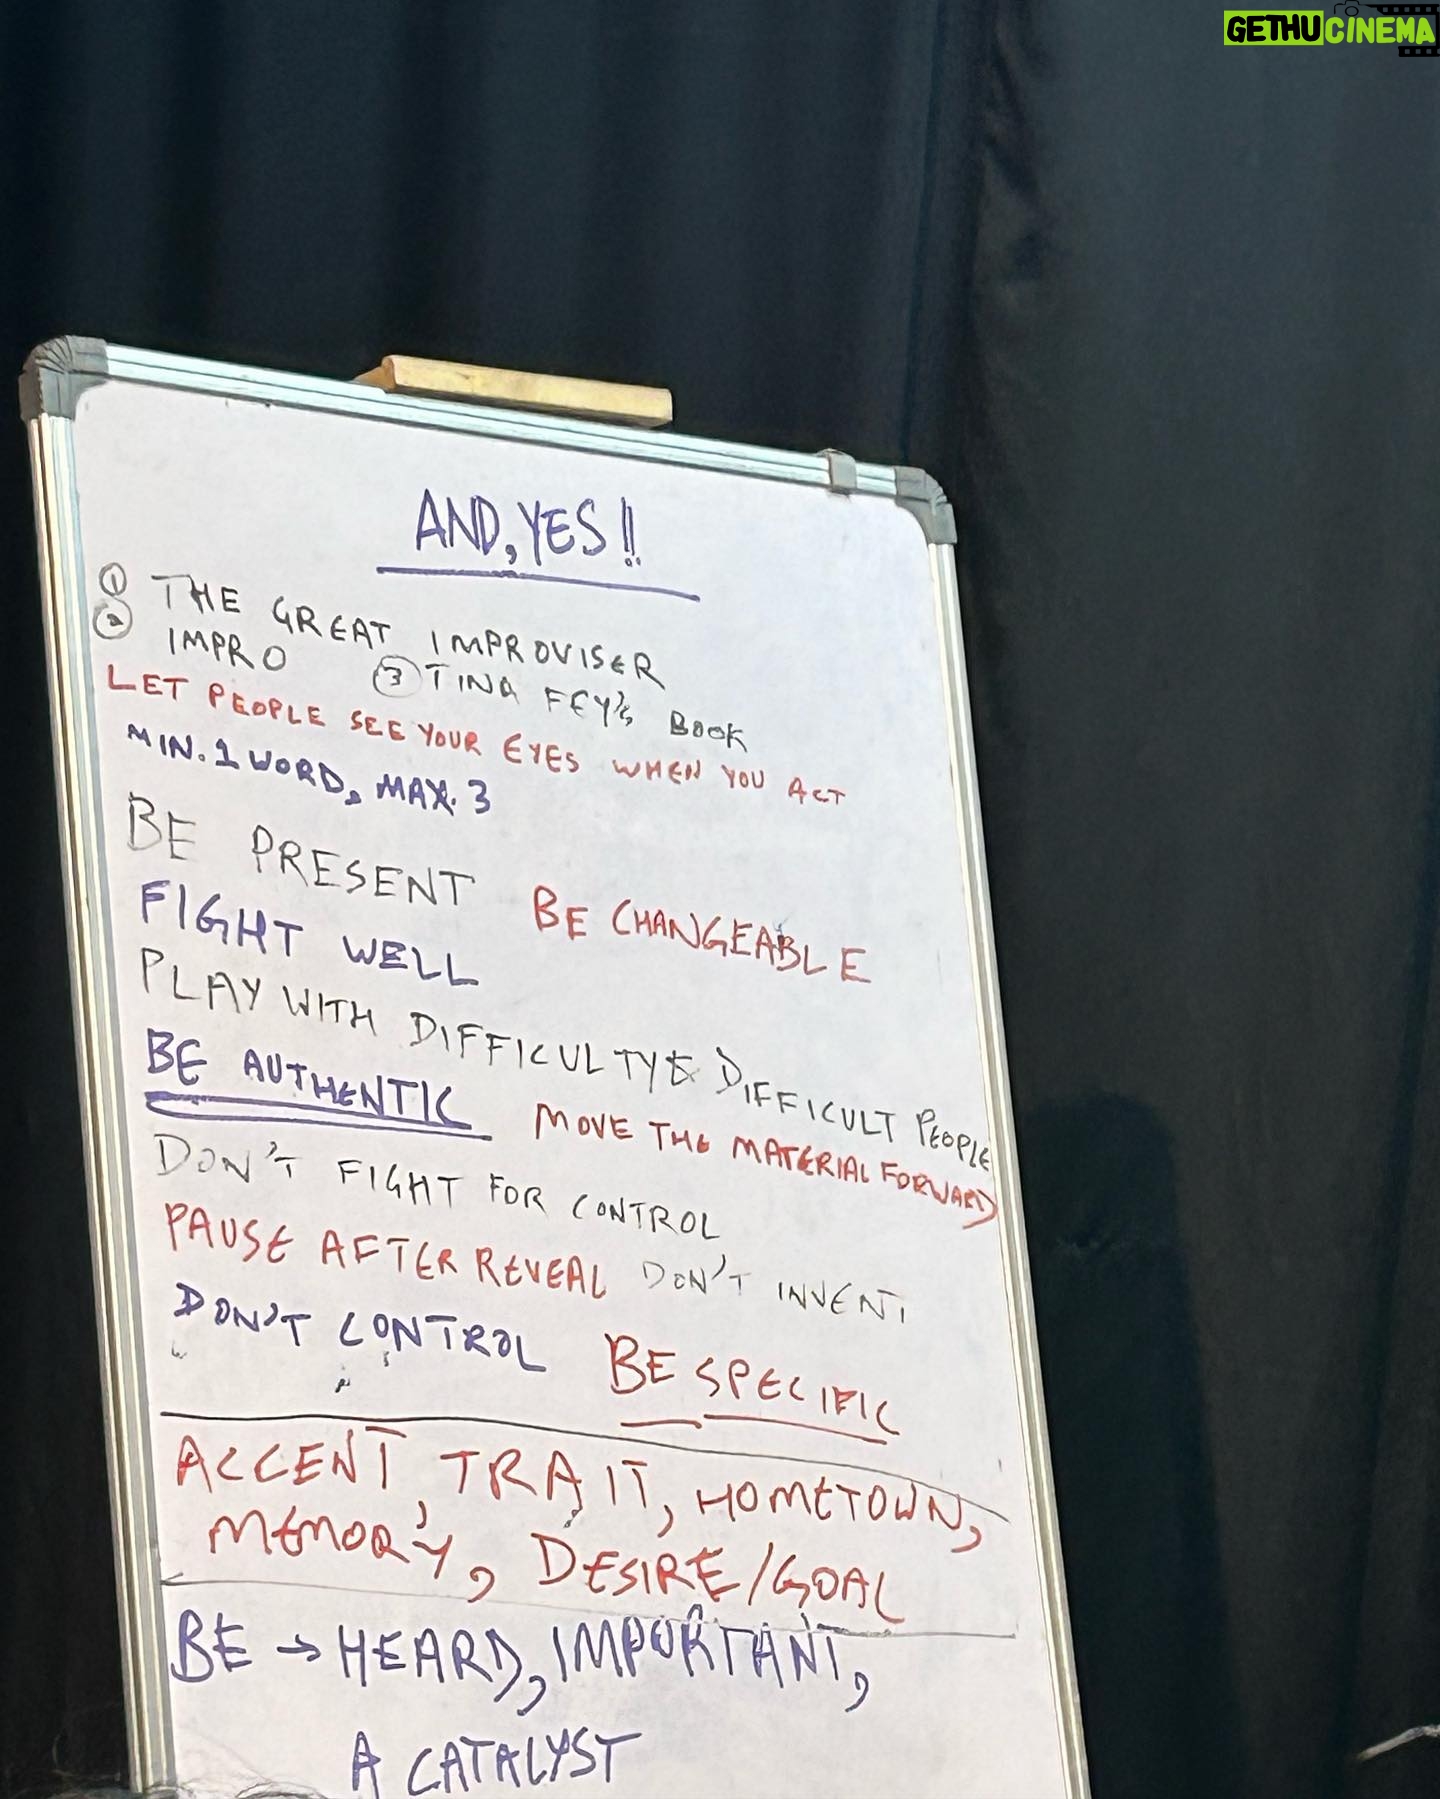 GETHUCINEMA
AND, YES!!
① THE GREAT IMPROVISER
② IMPRO ③ TINA FEY'S BOOK
LET PEOPLE SEE YOUR EYES WHEN YOU ACT
MIN. 1 WORD, MAX. 3
BE PRESENT BE CHANGEABLE
FIGHT WELL
PLAY WITH DIFFICULTY & DIFFICULT PEOPLE
BE AUTHENTIC MOVE THE MATERIAL FORWARD
DON'T FIGHT FOR CONTROL
PAUSE AFTER REVEAL DON'T INVENT
DON'T CONTROL BE SPECIFIC
ACCENT, TRAIT, HOMETOWN,
MEMORY, DESIRE/GOAL
BE → HEARD, IMPORTANT,
A CATALYST